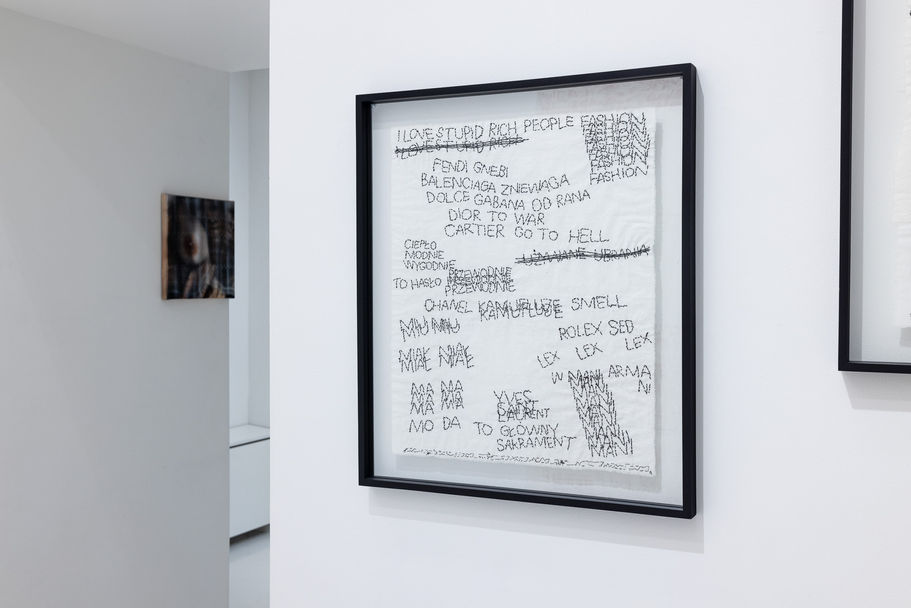 I LOVE STUPID RICH PEOPLE FASHION
I LOVE STUPID RICH FASHION
FASHION
FASHION
FASHION
FASHION
FENDI GNEBI
BALENCIAGA ZNIEWAGA
DOLCE GABANA OD RANA
DIOR TO WAR
CARTIER GO TO HELL
CIEPŁO
MODNIE
WYGODNIE
UŻYWANE UBRANIA
TO HASŁO PRZEWODNIE
PRZEWODNIE
PRZEWODNIE
CHANEL KAMUFLUJE SMELL
KAMUFLUJE
MIU MIU
ROLEX SED
LEX LEX LEX
MIAŁ MIAŁ
MIAŁ MIAŁ
W MANI ARMA
NI
MANI
MANI
MANI
MANI
MANI
MA MA
MA MA
MA MA
MO DA
YVES
SAINT
LAURENT
TO GŁÓWNY
SAKRAMENT